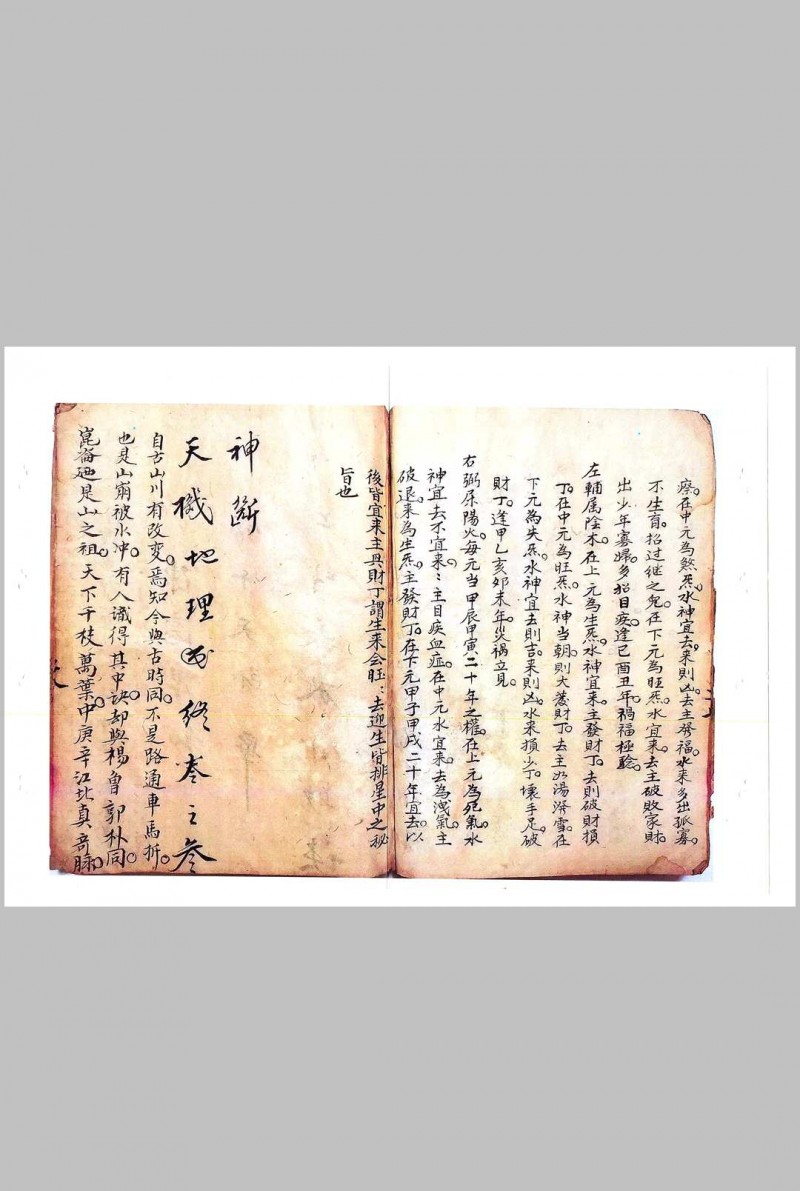 瘵。在中元為煞炁。水神宜去。来則凶。去主發福。水来多出孤寡。
不生育。招过继之兒。在下元為旺炁。水宜来。去主破敗家財。
出少年寡婦。多招目疾。逢巳酉丑年。禍福極驗。
左輔属陰木。在上元為生炁。水神宜来。主發財丁。去則破財損
丁。在中元為旺炁。水神当朝。則大發財丁。去主如湯潑雪。在
下元為失炁。水神宜去則吉。来則凶。水来損少丁。壞手足。破
財丁。逢甲乙亥卯未年。災禍立見。
右弼屬陽火。每元当甲辰甲寅二十年之權。在上元為死氣。水
神宜去不宜来。:主目疾血症。在中元水宜来。去為洩氣。主
破退。来為生炁。主發財丁。在下元甲子甲戌二十年宜去。以
後皆宜来主興財丁謂生来会旺::去迎生皆排星中之秘
旨也
神斷
天機地理
卷之叁
自古山川有改变。焉知今與古時同。不是路通車馬折。
也是山崩被水冲。有人識得其中訣。却與楊曾郭朴同。
崑崙廼是山之祖。天下千枝萬葉。中庚辛江北真奇脉。